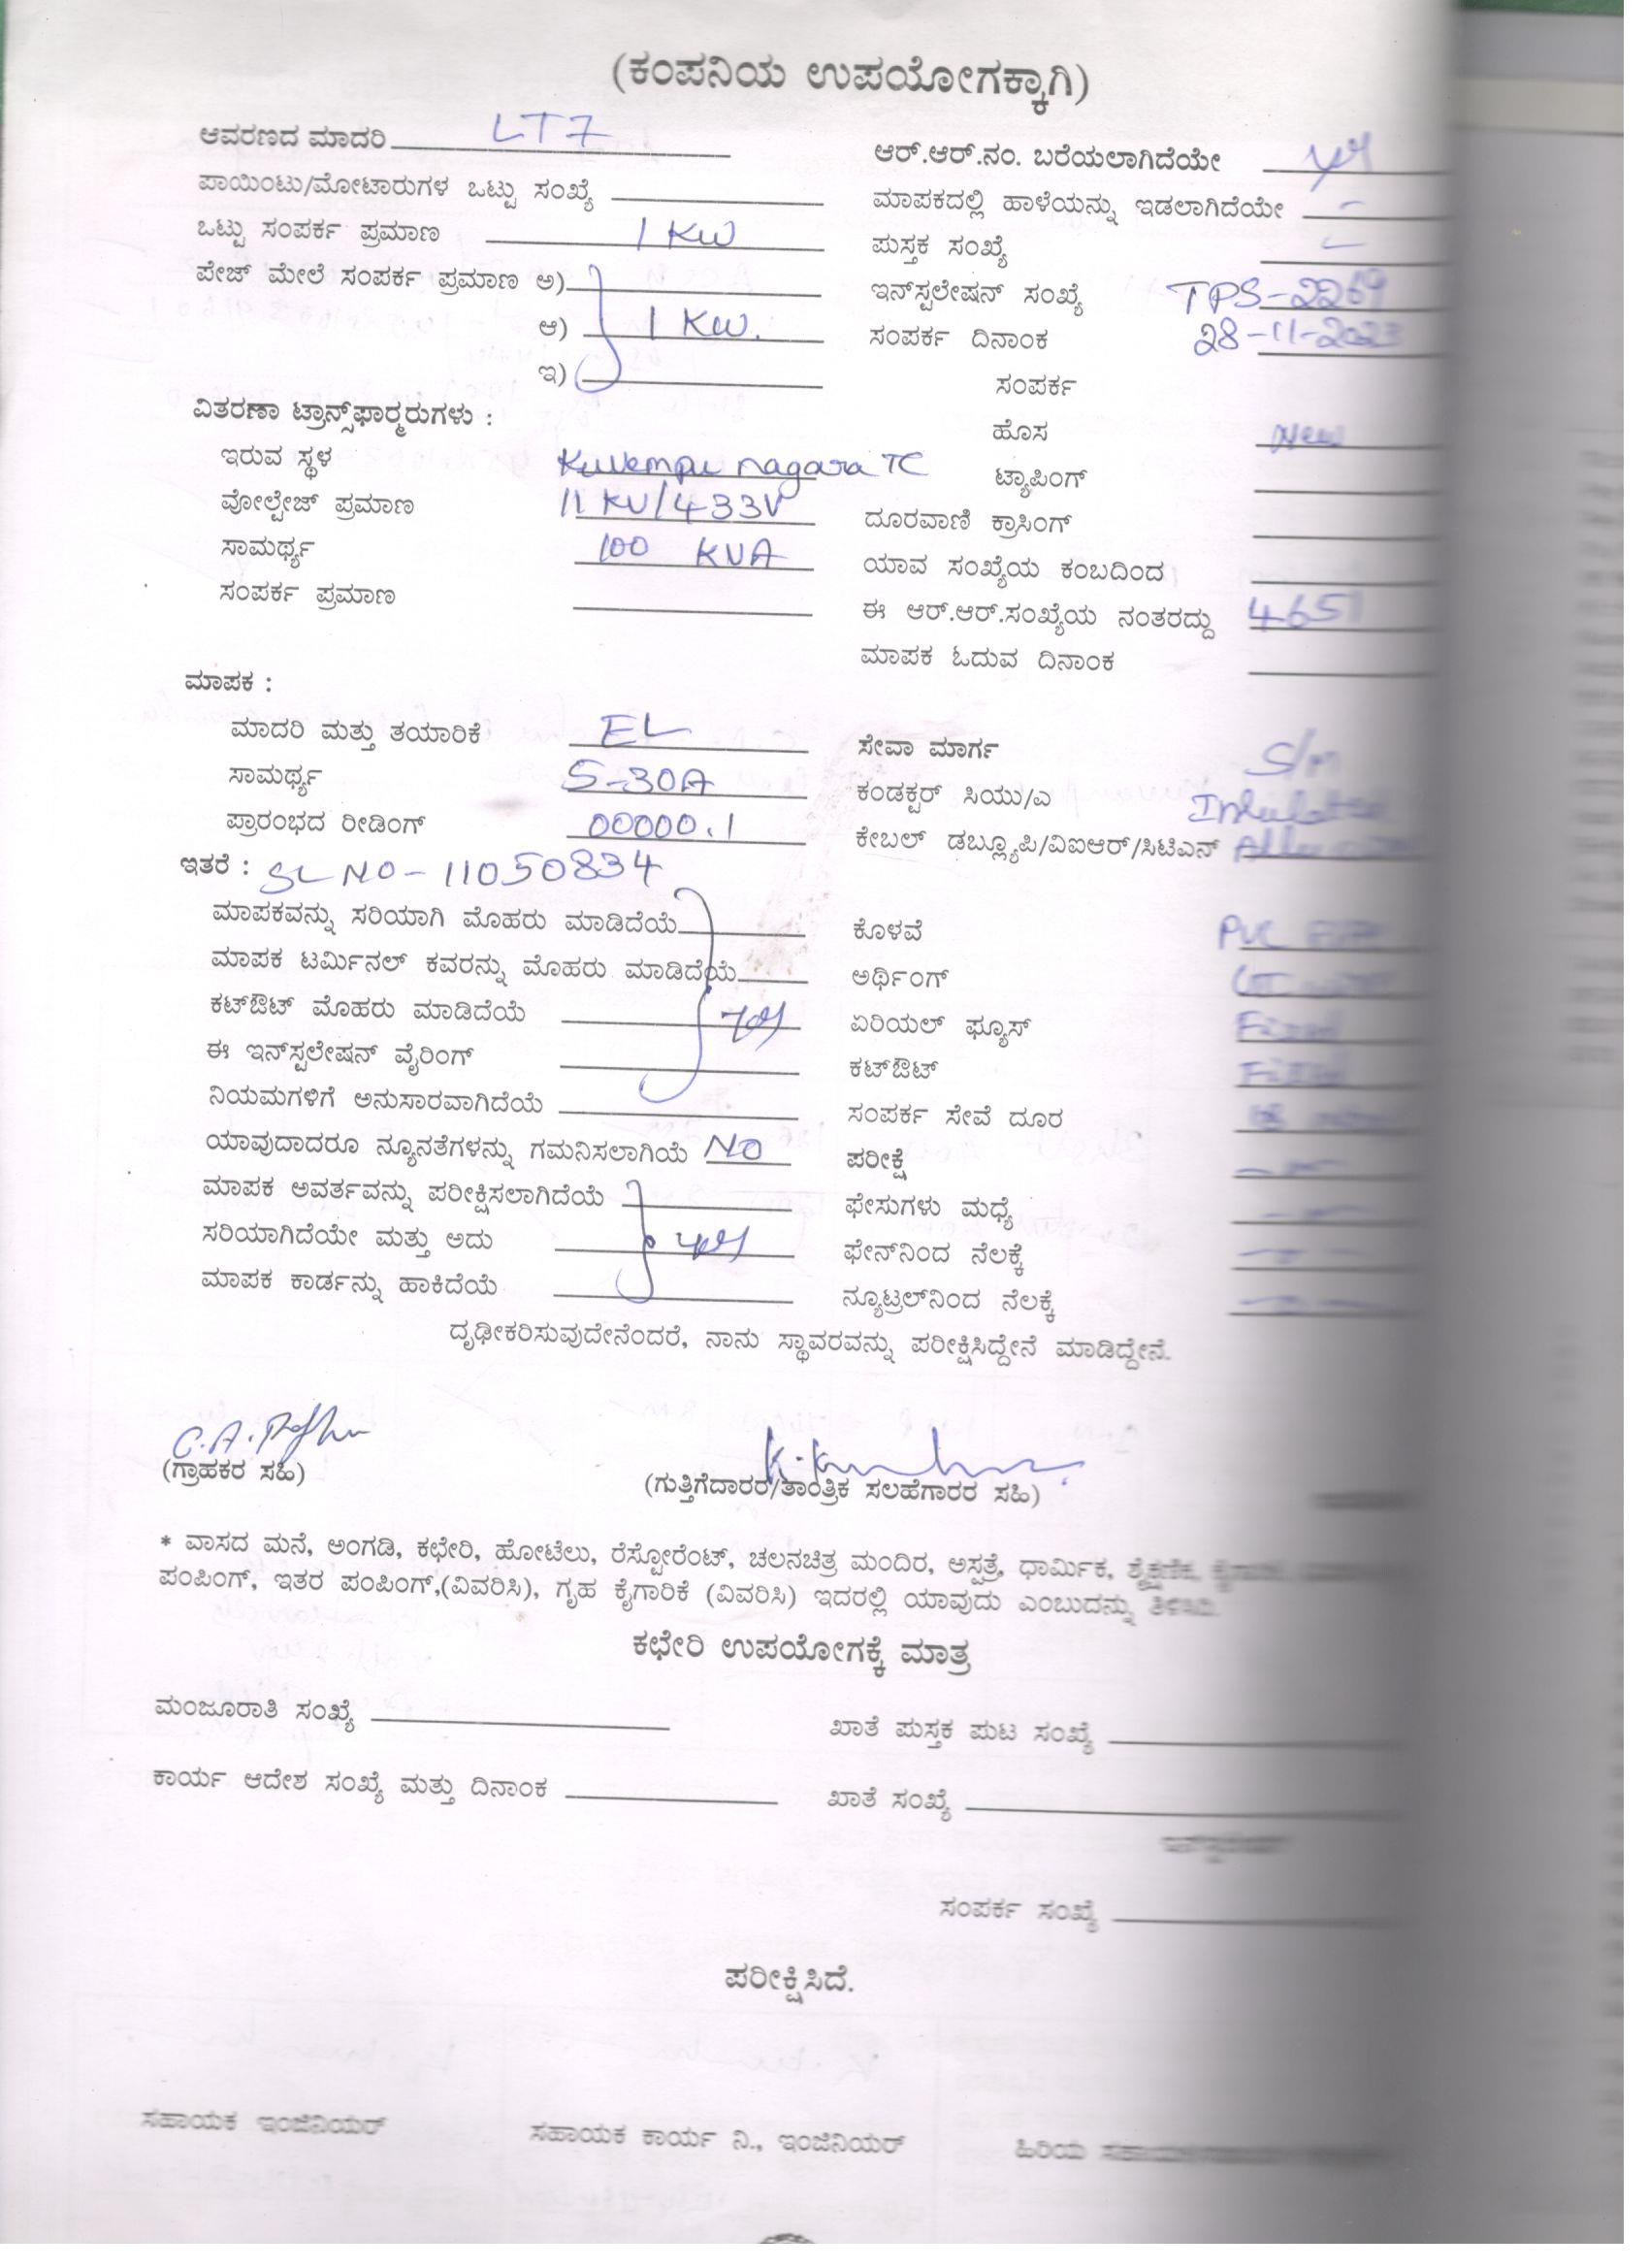 (ಕಂಪನಿಯ ಉಪಯೋಗಕ್ಕಾಗಿ)
ಆವರಣದ ಮಾದರಿ LT7
ಪಾಯಿಂಟು/ಮೋಟಾರುಗಳ ಒಟ್ಟು ಸಂಖ್ಯೆ
ಒಟ್ಟು ಸಂಪರ್ಕ ಪ್ರಮಾಣ 1 KW
ಪೇಜ್ ಮೇಲೆ ಸಂಪರ್ಕ ಪ್ರಮಾಣ ಅ)
ಆ) 1 KW.
ಇ)
ವಿತರಣಾ ಟ್ರಾನ್ಸ್‌ಫಾರ್ಮರುಗಳು :
ಇರುವ ಸ್ಥಳ Kuvempu nagara TC
ವೋಲ್ಟೇಜ್ ಪ್ರಮಾಣ 11 KV/433V
ಸಾಮರ್ಥ್ಯ 100 KVA
ಸಂಪರ್ಕ ಪ್ರಮಾಣ
ಆರ್.ಆರ್.ನಂ. ಬರೆಯಲಾಗಿದೆಯೇ yes
ಮಾಪಕದಲ್ಲಿ ಹಾಳೆಯನ್ನು ಇಡಲಾಗಿದೆಯೇ -
ಪುಸ್ತಕ ಸಂಖ್ಯೆ -
ಇನ್‌ಸ್ಟಲೇಷನ್ ಸಂಖ್ಯೆ TPS-2269
ಸಂಪರ್ಕ ದಿನಾಂಕ 28-11-2023
ಸಂಪರ್ಕ
ಹೊಸ New
ಟ್ಯಾಪಿಂಗ್
ದೂರವಾಣಿ ಕ್ರಾಸಿಂಗ್
ಯಾವ ಸಂಖ್ಯೆಯ ಕಂಬದಿಂದ
ಈ ಆರ್.ಆರ್.ಸಂಖ್ಯೆಯ ನಂತರದ್ದು 4651
ಮಾಪಕ ಓದುವ ದಿನಾಂಕ
ಮಾಪಕ :
ಮಾದರಿ ಮತ್ತು ತಯಾರಿಕೆ EL
ಸಾಮರ್ಥ್ಯ 5-30A
ಪ್ರಾರಂಭದ ರೀಡಿಂಗ್ 00000.1
ಇತರೆ : SL NO-11050834
ಮಾಪಕವನ್ನು ಸರಿಯಾಗಿ ಮೊಹರು ಮಾಡಿದೆಯೆ
ಮಾಪಕ ಟರ್ಮಿನಲ್ ಕವರನ್ನು ಮೊಹರು ಮಾಡಿದೆಯೆ
ಕಟ್‌ಔಟ್ ಮೊಹರು ಮಾಡಿದೆಯೆ yes
ಈ ಇನ್‌ಸ್ಟಲೇಷನ್ ವೈರಿಂಗ್
ನಿಯಮಗಳಿಗೆ ಅನುಸಾರವಾಗಿದೆಯೆ
ಯಾವುದಾದರೂ ನ್ಯೂನತೆಗಳನ್ನು ಗಮನಿಸಲಾಗಿಯೆ NO
ಮಾಪಕ ಅವರ್ತವನ್ನು ಪರೀಕ್ಷಿಸಲಾಗಿದೆಯೆ
ಸರಿಯಾಗಿದೆಯೇ ಮತ್ತು ಅದು yes
ಮಾಪಕ ಕಾರ್ಡನ್ನು ಹಾಕಿದೆಯೆ
ಸೇವಾ ಮಾರ್ಗ S/m
ಕಂಡಕ್ಟರ್ ಸಿಯು/ಎ
ಕೇಬಲ್ ಡಬ್ಲ್ಯೂಪಿ/ವಿಐಆರ್/ಸಿಟಿಎನ್
ಕೊಳವೆ PVC
ಅರ್ಥಿಂಗ್
ಏರಿಯಲ್ ಫ್ಯೂಸ್ Fixed
ಕಟ್‌ಔಟ್ Fixed
ಸಂಪರ್ಕ ಸೇವೆ ದೂರ
ಪರೀಕ್ಷೆ
ಫೇಸುಗಳು ಮಧ್ಯೆ
ಫೇನ್‌ನಿಂದ ನೆಲಕ್ಕೆ
ನ್ಯೂಟ್ರಲ್‌ನಿಂದ ನೆಲಕ್ಕೆ
ದೃಢೀಕರಿಸುವುದೇನೆಂದರೆ, ನಾನು ಸ್ಥಾವರವನ್ನು ಪರೀಕ್ಷಿಸಿದ್ದೇನೆ ಮಾಡಿದ್ದೇನೆ.
(ಗ್ರಾಹಕರ ಸಹಿ)
(ಗುತ್ತಿಗೆದಾರರ/ತಾಂತ್ರಿಕ ಸಲಹೆಗಾರರ ಸಹಿ)
* ವಾಸದ ಮನೆ, ಅಂಗಡಿ, ಕಛೇರಿ, ಹೋಟೆಲು, ರೆಸ್ಟೋರೆಂಟ್, ಚಲನಚಿತ್ರ ಮಂದಿರ, ಅಸ್ಪತ್ರೆ, ಧಾರ್ಮಿಕ, ಶೈಕ್ಷಣಿಕ,
ಪಂಪಿಂಗ್, ಇತರ ಪಂಪಿಂಗ್,(ವಿವರಿಸಿ), ಗೃಹ ಕೈಗಾರಿಕೆ (ವಿವರಿಸಿ) ಇದರಲ್ಲಿ ಯಾವುದು ಎಂಬುದನ್ನು ತಿಳಿಸಿರಿ.
ಕಛೇರಿ ಉಪಯೋಗಕ್ಕೆ ಮಾತ್ರ
ಮಂಜೂರಾತಿ ಸಂಖ್ಯೆ
ಖಾತೆ ಪುಸ್ತಕ ಪುಟ ಸಂಖ್ಯೆ
ಕಾರ್ಯ ಆದೇಶ ಸಂಖ್ಯೆ ಮತ್ತು ದಿನಾಂಕ
ಖಾತೆ ಸಂಖ್ಯೆ
ಸಂಪರ್ಕ ಸಂಖ್ಯೆ
ಪರೀಕ್ಷಿಸಿದೆ.
ಸಹಾಯಕ ಇಂಜಿನಿಯರ್
ಸಹಾಯಕ ಕಾರ್ಯ ನಿ., ಇಂಜಿನಿಯರ್
ಹಿರಿಯ